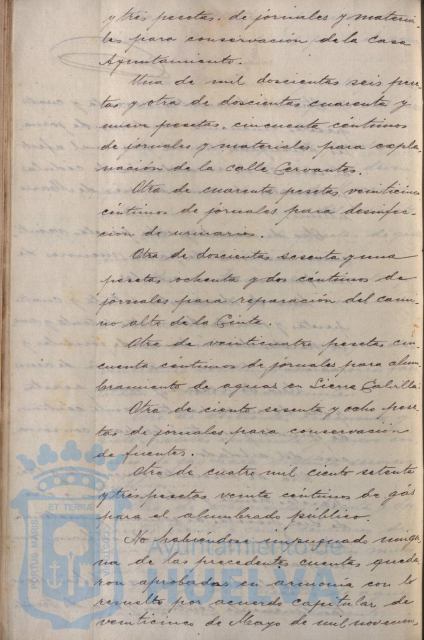 y tres pesetas, de jornales y materia-
les para conservación de la Casa
Ayuntamiento.
Una de mil doscientas seis pese-
tas y otra de doscientas cuarenta y
nueve pesetas, cincuenta céntimos
de jornales y materiales para expla-
nación de la calle Cervantes.
Otra de cuarenta pesetas veinticinco
céntimos de jornales para desinfec-
ción de urinarios.
Otra de doscientas sesenta y una
pesetas ochenta y dos céntimos de
jornales para reparación del cami-
no alto de la Cinta.
Otra de veinticuatro pesetas cin-
cuenta céntimos de jornales para alum-
bramiento de aguas en Sierra Cabrilla.
Otra de ciento sesenta y ocho pese-
tas de jornales para conservación
de fuentes.
Otra de cuatro mil ciento setenta
y tres pesetas veinte céntimos de gas
para el alumbrado público.
No habiéndose impugnado ningu-
na de las precedentes cuentas queda-
ron aprobadas en armonía con lo
resuelto por acuerdo capitular de
veinticinco de Mayo de mil novecien
Ayuntamiento de
HUELVA
PORTUS MARIS
ET TERRAE
CUSTODIA